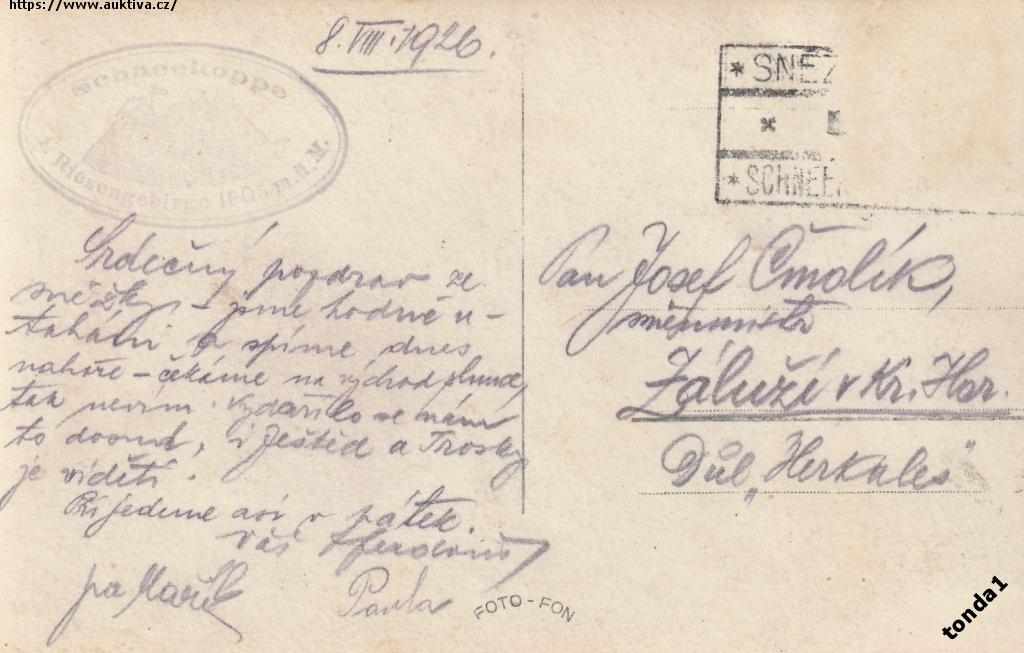 https://www.auktiva.cz/
8. VIII. 1926.
Schneekoppe
i. Riesengebirge 1605 m.ü.M.
*SNĚŽ
*SCHNEEK
Srdečný pozdrav ze
sněžky, – jsme hodně u-
taháni a spíme dnes
nahoře – čekáme na východ slunce,
tak nevím. Vydařilo se nám
to dosud, i Ještěd a Trosky
je viděti.
Přijedeme asi v pátek.
Váš
Pavla
Pan Josef Čmolík,
Záluží v Kr. Hor.
Důl „Herkules"
FOTO-FON
tonda1